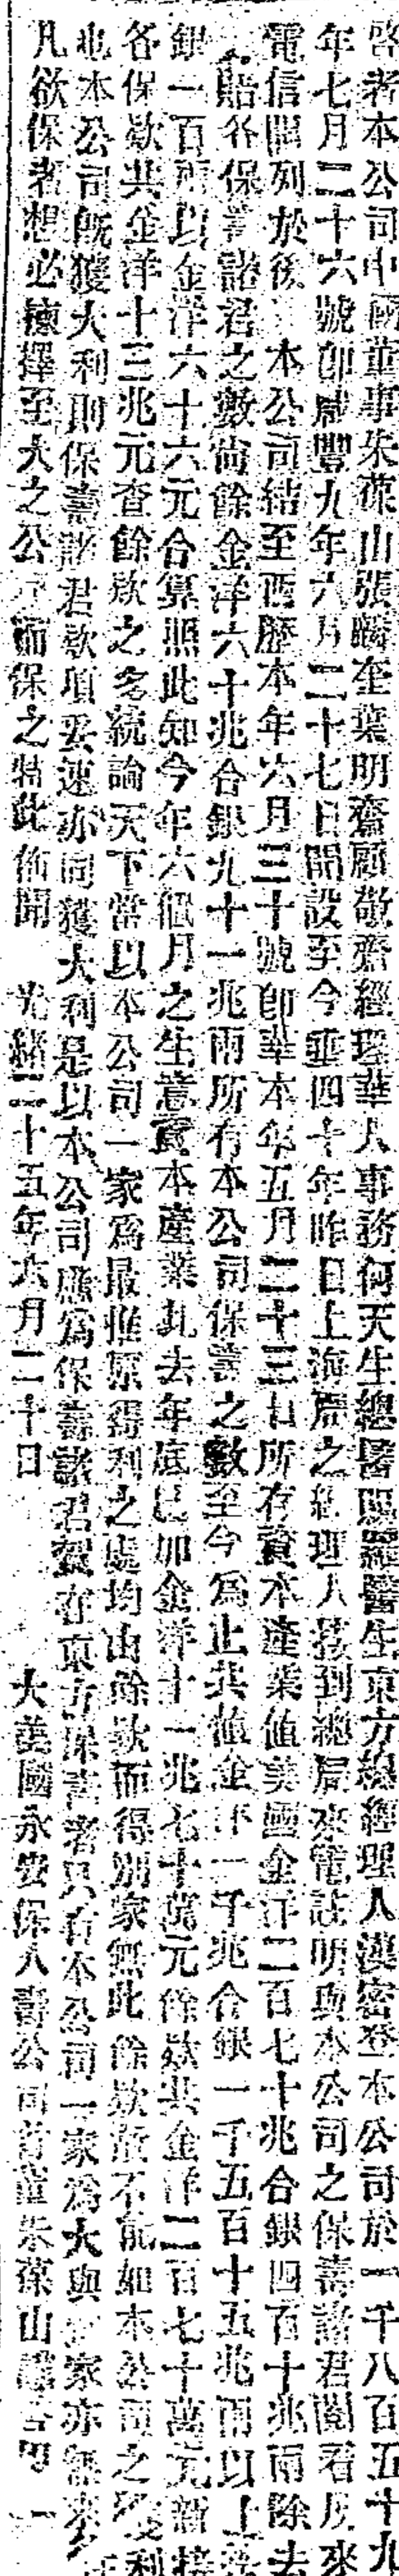 啓者本公司中國董事朱葆山張麟奎葉明齋顧敬齋經理華人事務何天生總醫照羅醫生東方總經理人漢密登本公司於一千八百五十九
年七月二十六號即咸豐九年六月二十七日開設至今垂四十年昨日上海局之經理人接到總局來電註明與本公司之保壽諸君閱看及來
電信開列於後 本公司結至西歷本年六月三十號即華本年五月二十三日所存資本產業值美國金洋二百七十兆合銀四百十兆兩除去
賠各保壽諸君之數尚餘金洋六十兆合銀九十一兆兩所有本公司保壽之數至今為止共值金洋一千兆合銀一千五百十五兆兩以上
銀一百兩以金洋六十六元合算照此知今年六個月之生意資本產業比去年底已加金洋十一兆七十萬元餘款共金洋二百七十萬元新接
各保款共金洋十三兆元查餘款之多統論天下當以本公司一家為最推原得利之處均由餘款而得別家無此餘款故不能如本公司之獲利
也本公司既獲大利則保壽諸君款項妥速亦同獲大利是以本公司應為保壽諸君賀在東方保壽者只有本公司一家為大與家亦無
凡欲保者想必揀擇至大之公司而保之特此佈聞 光緒二十五年六月二十日 大美國永安保人壽公司首董朱葆山謹啓